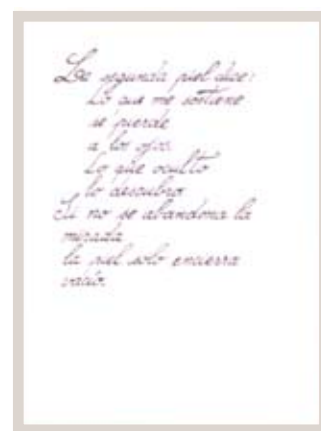 La segunda piel dice:
Lo que me sostiene
se pierde
a los ojos.
Lo que oculto
lo descubro
Si no se abandona la
mirada
la piel solo encierra
vacío.